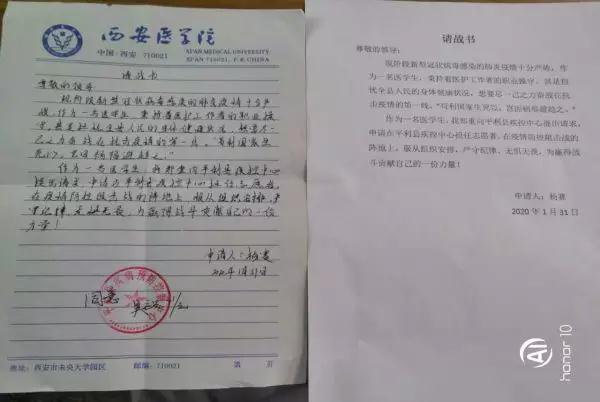 西安医学院
中国·西安 710021
XI'AN MEDICAL UNIVERSITY
XI'AN 710021, P.R.CHINA
请战书
尊敬的领导
现阶段新型冠状病毒感染的肺炎疫情十分严
峻,作为一名医学生,秉持着医护工作者的职业操
作为一名医学生,我郑重向平利县疾控中心
提出请求,申请在平利县疾控中心担任志愿者,
在疫情防控阻击战的阵地上,服从组织安排,严
守纪律,无惧无畏,为赢得战斗贡献自己的一份
力量!
申请人:杨赛
同意
地址:西安市未央大学园区 邮编:710021 第 页
请战书
尊敬的领导:
现阶段新型冠状病毒感染的肺炎疫情十分严峻,作
为一名医学生,秉持着医护工作者的职业操守,甚是担
忧全县人民的身体健康状况,想要尽一己之力奋战在抗
击疫情的第一线。“苟利国家生死以,岂因祸福避趋之。”
作为一名医学生,我郑重向平利县疾控中心提出请求,
申请在平利县疾控中心担任志愿者,在疫情防控阻击战的
阵地上,服从组织安排,严守纪律、无惧无畏,为赢得战
斗贡献自己的一份力量!
申请人:杨赛
2020 年 1 月 31 日
honor 10